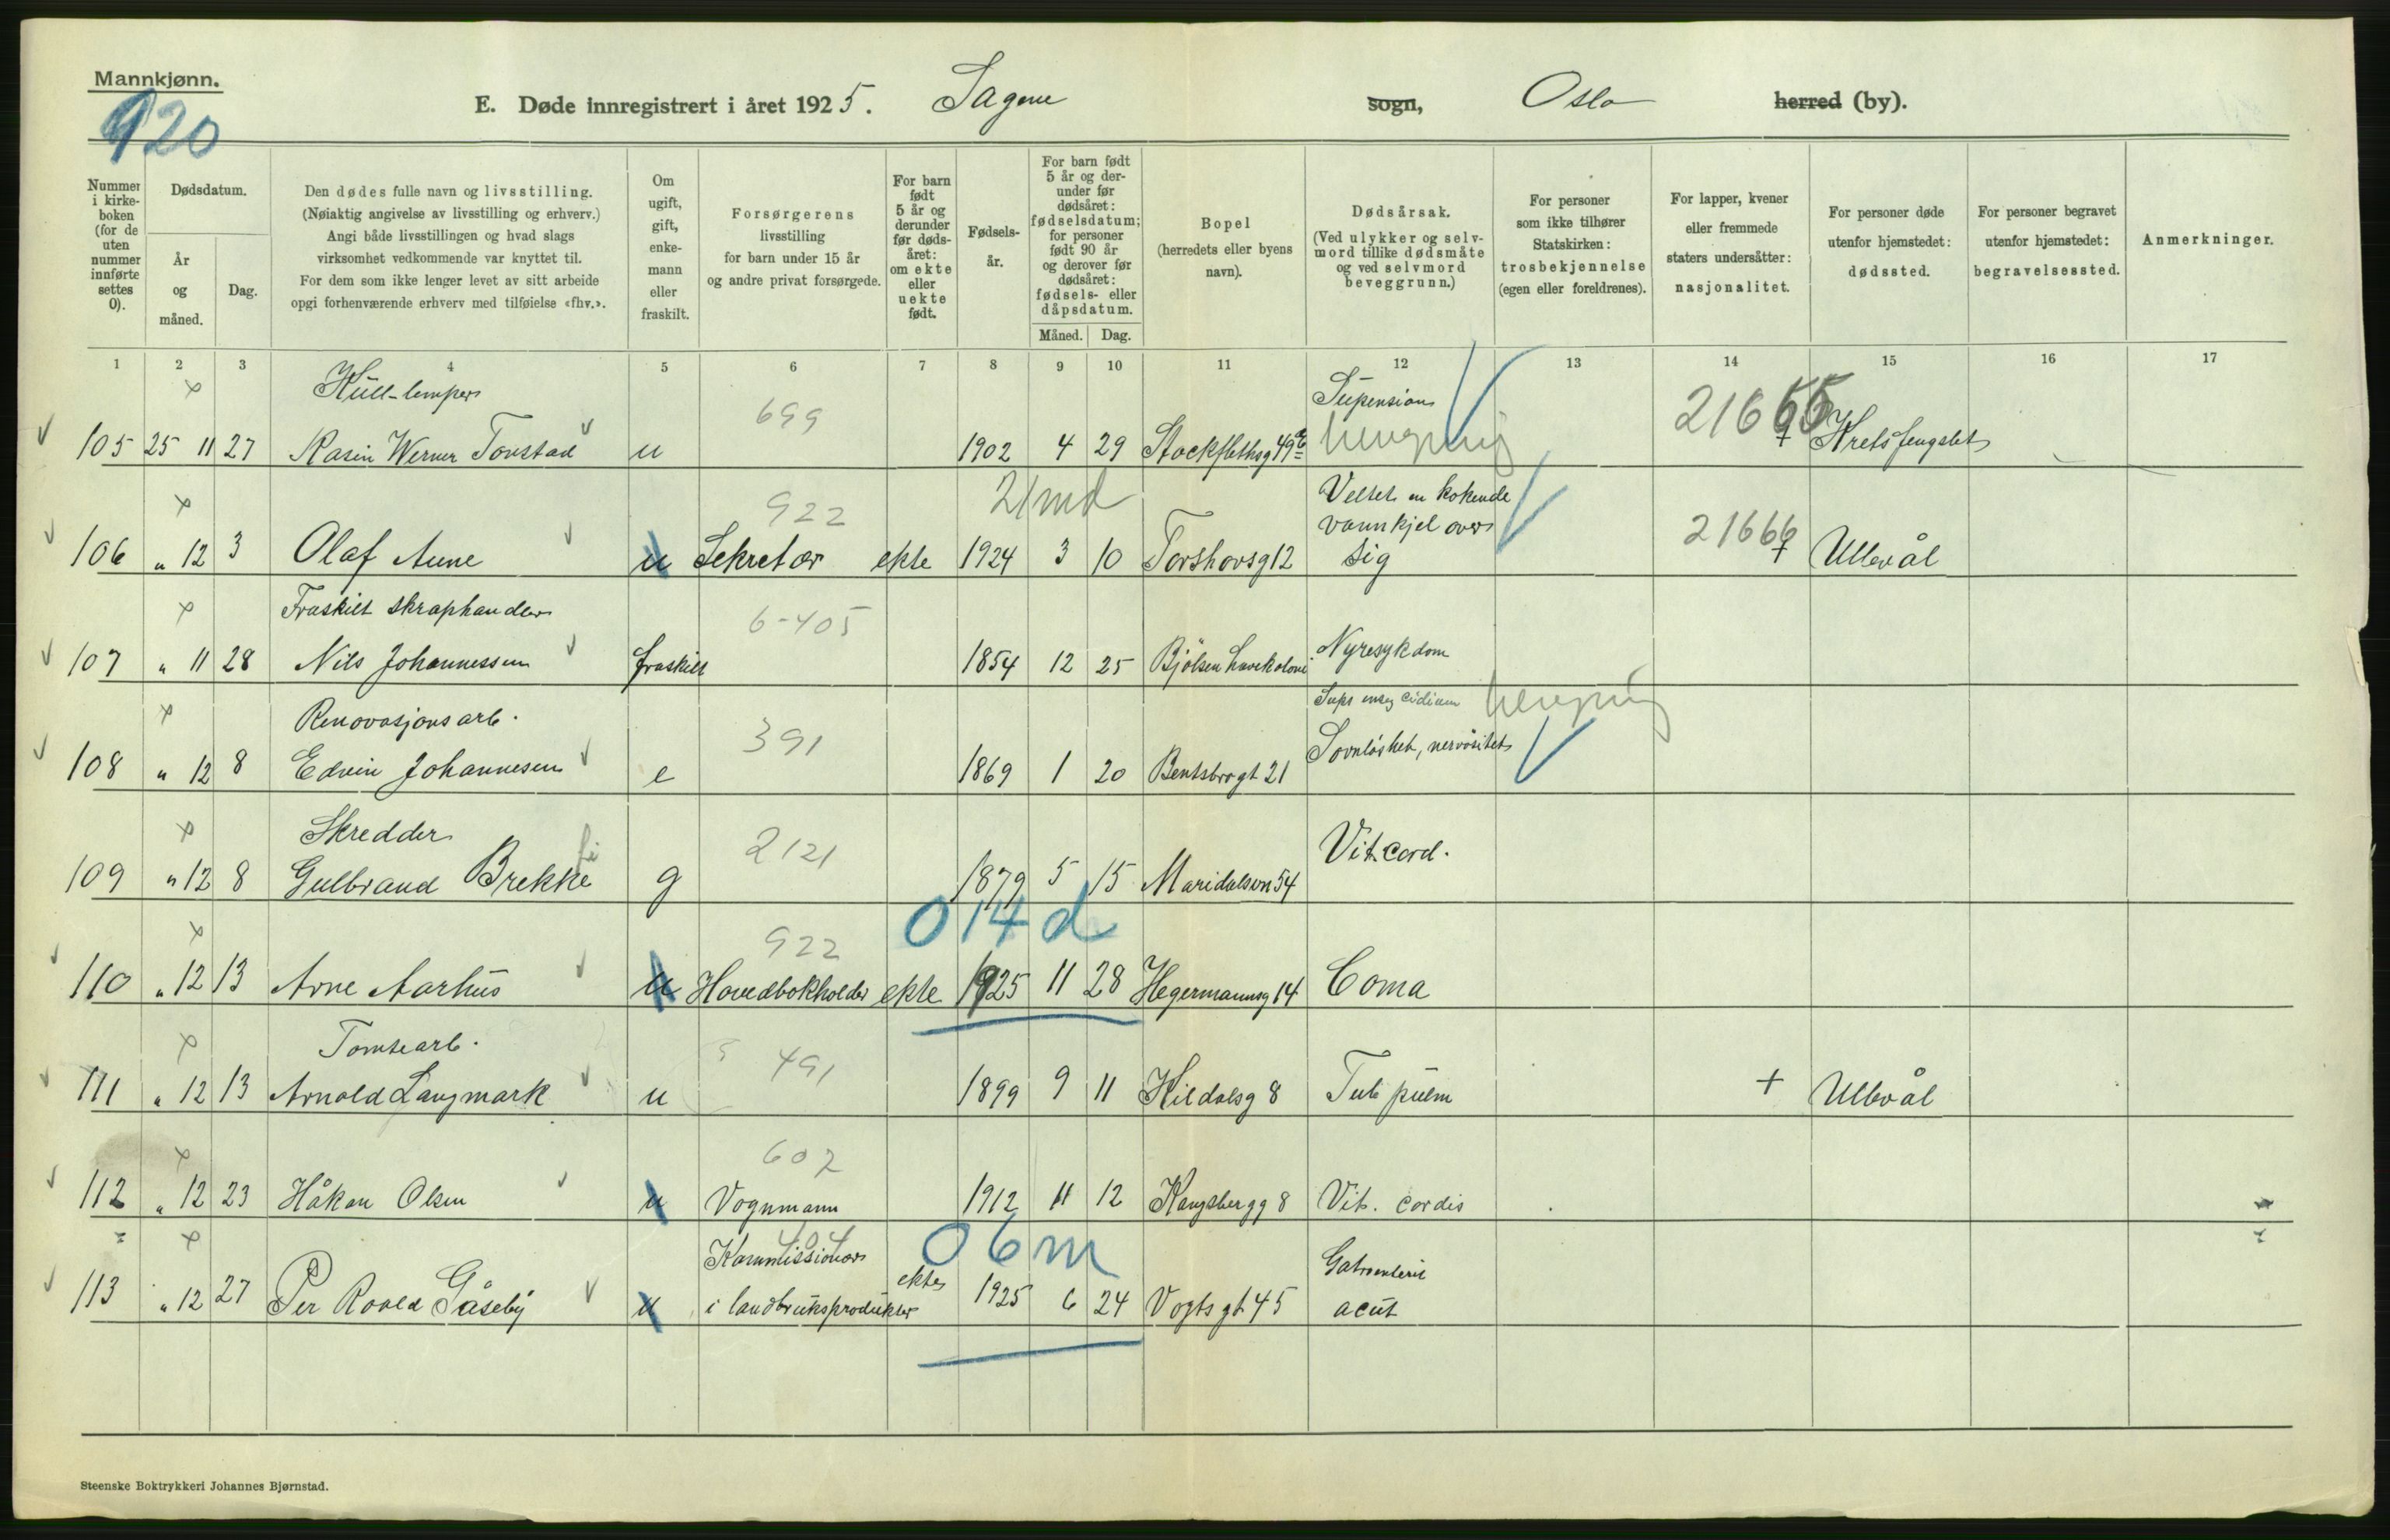 Mannkjønn.
920
E. Døde innregistrert i året 1925. Sagene sogn, Oslo herred (by).
Nummer i kirkeboken (for de uten nummer innførte settes 0).
Dødsdatum.
År og måned.
Dag.
Den dødes fulle navn og livsstilling.
(Nøiaktig angivelse av livsstilling og erhverv.)
Angi både livsstillingen og hvad slags
virksomhet vedkommende var knyttet til.
For dem som ikke lenger levet av sitt arbeide
opgi forhenværende erhverv med tilføielse «fhv.».
Om ugift, gift, enkemann eller fraskilt.
Forsørgerens
livsstilling
for barn under 15 år
og andre privat forsørgede.
For barn født 5 år og derunder før dødsåret: om ekte eller uekte født.
Fødselsår.
For barn født 5 år og derunder før dødsåret: fødselsdatum; for personer født 90 år og derover før dødsåret: fødsels- eller dåpsdatum.
Måned. Dag.
Bopel
(herredets eller byens
navn).
Dødsårsak.
(Ved ulykker og selvmord tillike dødsmåte og ved selvmord beveggrunn.)
For personer
som ikke tilhører
Statskirken:
trosbekjennelse
(egen eller foreldrenes).
For lapper, kvener
eller fremmede
staters undersåtter:
nasjonalitet.
For personer døde
utenfor hjemstedet:
dødssted.
For personer begravet
utenfor hjemstedet:
begravelsessted.
Anmerkninger.
1 2 3 4 5 6 7 8 9 10 11 12 13 14 15 16 17
Kull-lemper 699 Supension
105 25 11 27 Rasin Werner Tonstad u 1902 4 29 Stockflethsg 49 hengning 21665 + Kretsfengslet
922 21 md Veltet en kokende
vannkjel over
106 " 12 3 Olaf Aune u Sekretær ekte 1924 3 10 Torshovsg 12 sig 21666 + Ullevål
Fraskilt skraphandler 6-405
107 " 11 28 Nils Johannessen fraskilt 1854 12 25 Bjølsen Havekoloni Nyresykdom
Renovasjonsarb. 391 hengning
108 " 12 8 Edvin Johannesen e 1869 1 20 Bentsbrogt 21 Sovnløshet, nervøsitet
Skredder 2121
109 " 12 8 Gulbrand Brekke g 1879 5 15 Maridalsvn 54 Vit. cord.
922 0 14 d
110 " 12 13 Arne Aarhus u Hovedbokholder ekte 1925 11 28 Hegermannsg 14 Coma
Tomtearb. 491
111 " 12 13 Arnold Langmark u 1899 9 11 Hildalsg 8 Tub pulm + Ullevål
602
112 " 12 23 Håkon Olsen u Vognmann 1912 11 12 Kongsbergg 8 Vit. cordis
Kommissionær 0 6 m
113 " 12 27 Per Roald Gåseby u i landbruksprodukter ekte 1925 6 24 Vogtsgt 45 acut
Steenske Boktrykkeri Johannes Bjørnstad.